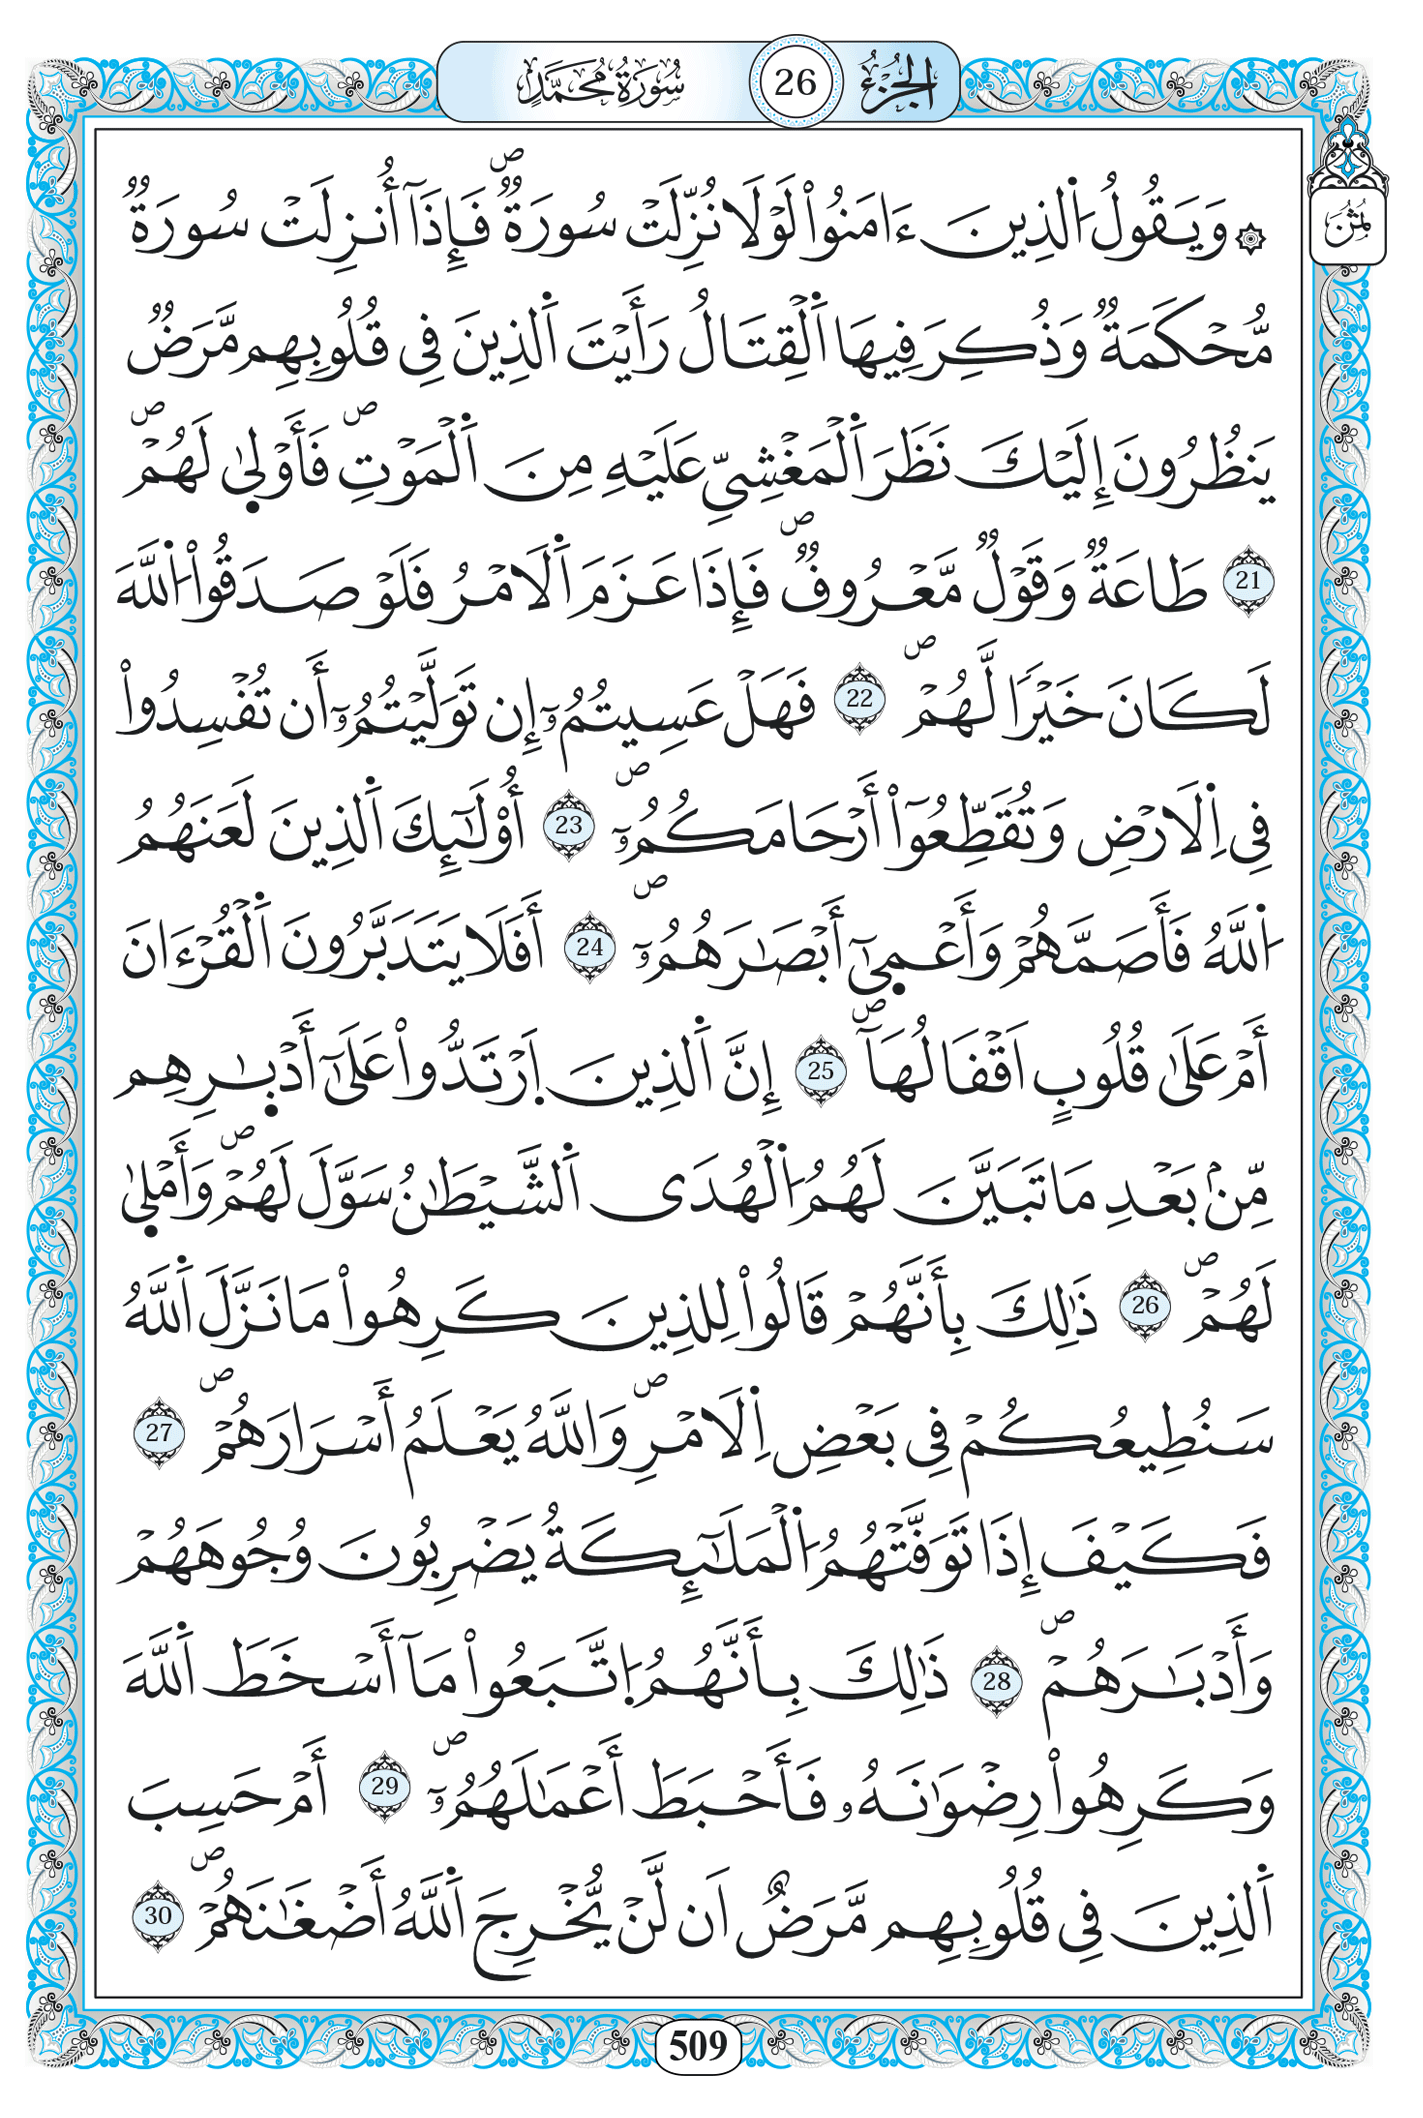 الجزء 26 سورة محمد
ثمن
۞ وَيَقُولُ اُ۬لذِينَ ءَامَنُواْ لَوْلَا نُزِّلَتْ سُورَةٞۖ فَإِذَآ أُنزِلَتْ سُورَةٞ
مُّحْكَمَةٞ وَذُكِرَ فِيهَا اَ۬لْقِتَالُ رَأَيْتَ اَ۬لذِينَ فِي قُلُوبِهِم مَّرَضٞ
يَنظُرُونَ إِلَيْكَ نَظَرَ اَ۬لْمَغْشِيِّ عَلَيْهِ مِنَ اَ۬لْمَوْتِۖ فَأَوْل۪ىٰ لَهُمْۖ
21 طَاعَةٞ وَقَوْلٞ مَّعْرُوفٞۖ فَإِذَا عَزَمَ اَ۬لَامْرُ فَلَوْ صَدَقُواْ اُ۬للَّهَ
لَكَانَ خَيْراٗ لَّهُمْۖ 22 فَهَلْ عَسِيتُمُۥٓ إِن تَوَلَّيْتُمُۥٓ أَن تُفْسِدُواْ
فِي اِ۬لَارْضِ وَتُقَطِّعُوٓاْ أَرْحَامَكُمُۥٓۖ 23 أُوْلَٰٓئِكَ اَ۬لذِينَ لَعَنَهُمُ
اُ۬للَّهُ فَأَصَمَّهُمْ وَأَعْم۪ىٰٓ أَبْصَٰرَهُمُۥٓۖ 24 أَفَلَا يَتَدَبَّرُونَ اَ۬لْقُرْءَانَ
أَمْ عَلَىٰ قُلُوبٍ اَقْفَالُهَآۖ 25 إِنَّ اَ۬لذِينَ اَ۪رْتَدُّواْ عَلَىٰٓ أَدْبٰ۪رِهِم
مِّنۢ بَعْدِ مَا تَبَيَّنَ لَهُمُ اُ۬لْهُدَى اَ۬لشَّيْطَٰنُ سَوَّلَ لَهُمْۖ وَأَمْل۪ىٰ
لَهُمْۖ 26 ذَٰلِكَ بِأَنَّهُمْ قَالُواْ لِلذِينَ كَرِهُواْ مَا نَزَّلَ اَ۬للَّهُ
سَنُطِيعُكُمْ فِي بَعْضِ اِ۬لَامْرِۖ وَاللَّهُ يَعْلَمُ أَسْرَارَهُمْۖ 27
فَكَيْفَ إِذَا تَوَفَّتْهُمُ اُ۬لْمَلَٰٓئِكَةُ يَضْرِبُونَ وُجُوهَهُمْ
وَأَدْبَٰرَهُمْۖ 28 ذَٰلِكَ بِأَنَّهُمُ اُ۪تَّبَعُواْ مَآ أَسْخَطَ اَ۬للَّهَ
وَكَرِهُواْ رِضْوَٰنَهُۥ فَأَحْبَطَ أَعْمَٰلَهُمُۥٓۖ 29 أَمْ حَسِبَ
اَ۬لذِينَ فِي قُلُوبِهِم مَّرَضٌ اَن لَّنْ يُّخْرِجَ اَ۬للَّهُ أَضْغَٰنَهُمْۖ 30
509